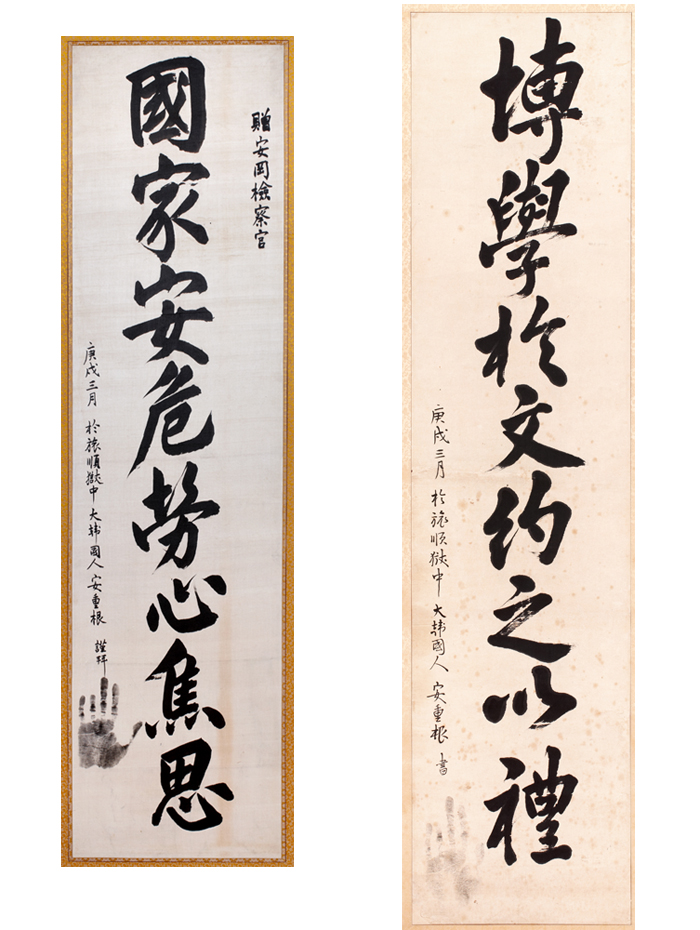 贈安岡檢察官
國家安危勞心焦思
庚戌三月 於旅順獄中 大韓國人 安重根 謹拜
博學於文約之以禮
庚戌三月 於旅順獄中 大韓國人 安重根 書